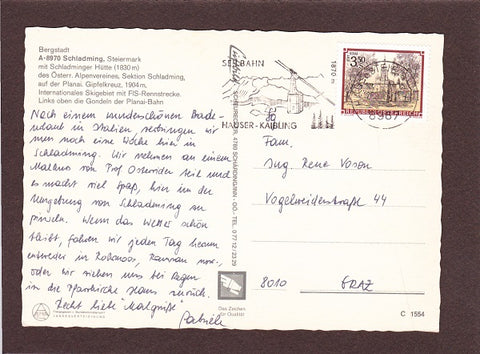 Bergstadt
A-8970 Schladming, Steiermark
mit Schladminger Hütte (1830 m)
des Österr. Alpenvereines, Sektion Schladming,
auf der Planai. Gipfelkreuz, 1904 m,
Internationales Skigebiet mit FIS-Rennstrecke.
Links oben die Gondeln der Planai-Bahn
Nach einem wunderschönen Bade-
urlaub in Italien, verbringen wir
nun noch eine Woche hier in
Schladming. Wir nehmen an einem
Malkurs von Prof. teil und
es macht viel Spaß, hier in der
Umgebung von Schladming zu
Wenn das Wetter schön
bleibt, fahren wir jeden Tag
entweder in Ramsau
oder wir ziehen uns bei Regen
in die zurück.
Recht liebe Malgrüße
SEILBAHN
1870 m
HAUSER-KAIBLING
8967
3.50
REPUBLIK ÖSTERREICH
Fam.
Ing. Rene
Vogelweiderstraße 44
8010 GRAZ
Das Zeichen
für Qualität
C 1554